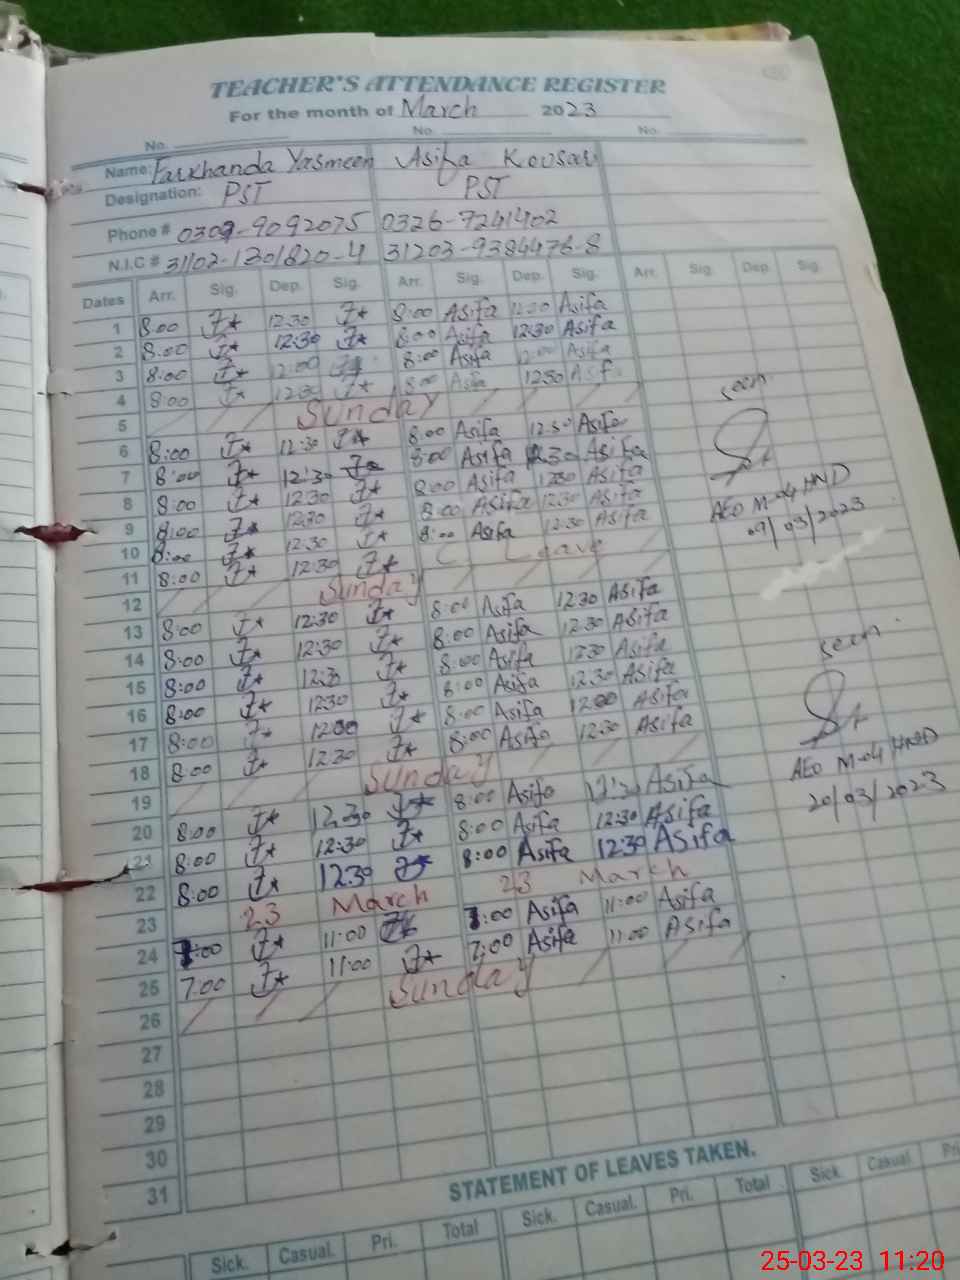 TEACHER'S ATTENDANCE REGISTER
For the month of March 2023
No. No. No.
Name: Farkhanda Yasmeen Asifa Kousar
Designation: PST PST
Phone # 0309-9092075 0326-7241402
N.I.C # 31102-1301820-4 31203-9384476-8
Dates Arr. Sig. Dep. Sig. Arr. Sig. Dep. Sig. Arr. Sig. Dep. Sig.
1 8:00 F* 12:30 F* 8:00 Asifa 12:30 Asifa
2 8:00 F* 12:30 F* 8:00 Asifa 12:30 Asifa
3 8:00 F* 12:00 8:00 Asifa 12:00 Asifa
4 8:00 F* 12:30 F* 8:00 Asifa 12:30 Asifa
5 Sunday
seen
6 8:00 F* 12:30 F* 8:00 Asifa 12:30 Asifa
7 8:00 F* 12:30 F* 8:00 Asifa 12:30 Asifa
8 8:00 F* 12:30 F* 8:00 Asifa 12:30 Asifa
9 8:00 F* 12:30 F* 8:00 Asifa 12:30 Asifa
AEO M-04 HND
09/03/2023
10 8:00 F* 12:30 F* 8:00 Asifa 12:30 Asifa
11 8:00 F* 12:30 F* C Leave
12 Sunday
13 8:00 F* 12:30 F* 8:00 Asifa 12:30 Asifa
14 8:00 F* 12:30 F* 8:00 Asifa 12:30 Asifa
15 8:00 F* 12:30 F* 8:00 Asifa 12:30 Asifa
seen
16 8:00 F* 12:30 F* 8:00 Asifa 12:30 Asifa
17 8:00 F* 12:00 F* 8:00 Asifa 12:00 Asifa
18 8:00 F* 12:30 F* 8:00 Asifa 12:30 Asifa
AEO M-04 HND
20/03/2023
19 Sunday
20 8:00 F* 12:30 F* 8:00 Asifa 12:30 Asifa
21 8:00 F* 12:30 F* 8:00 Asifa 12:30 Asifa
22 8:00 F* 12:30 F* 8:00 Asifa 12:30 Asifa
23 23 March 23 March
24 7:00 F* 11:00 F* 7:00 Asifa 11:00 Asifa
25 7:00 F* 11:00 F* 7:00 Asifa 11:00 Asifa
26 Sunday
27
28
29
30
31
STATEMENT OF LEAVES TAKEN.
Sick. Casual. Pri. Total Sick. Casual. Pri. Total Sick. Casual Pri
25-03-23 11:20